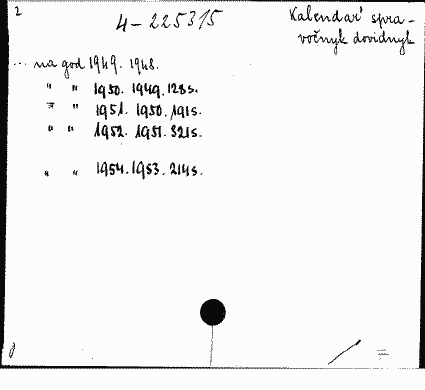 2
4-225315
Kalendař spra-
vočnyk dovidnyk
... na god 1949. 1948.
" " 1950. 1949. 128s.
" " 1951. 1950. 191s.
" " 1952. 1951. 321s.
" " 1954. 1953. 214s.